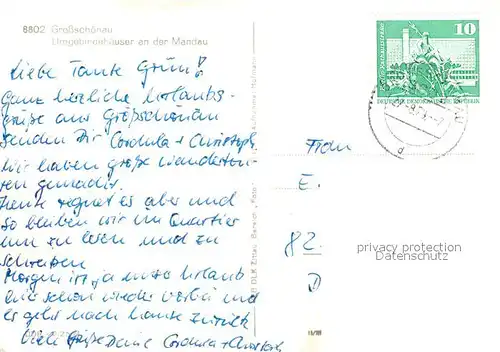 8802 Großschönau
Umgebindehäuser an der Mandau
Liebe Tante Grün!
Ganz herzliche Urlaubs-
grüße aus Großschönau
senden Dir Cordula + Christoph.
Wir haben große Wanderten
ren gemacht.
Heute regnet es aber und
so bleiben wir im Quartier
um zu lesen und zu
schreiben
Morgen ist ja unser Urlaub
schon wieder vorbei und
es geht nach Hause zurück
Viele Grüße Deine Cordula + Christoph
10
DEUTSCHE DEMOKRATISCHE REPUBLIK
Frau
E.
82
D
privacy protection
Datenschutz